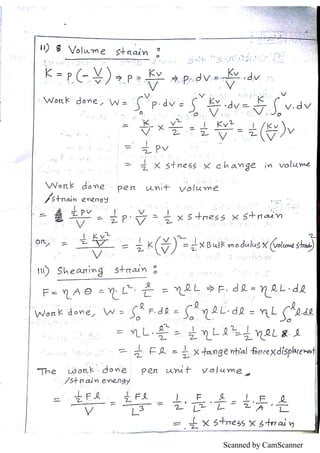 II) Volume strain :
K = P (- V/v) ⇒ P = Kv/V ⇒ p.dv = Kv/V .dv
Work done, W = ∫₀ᵛ P.dv = ∫₀ᵛ Kv/V .dv = K/V ∫₀ᵛ v.dv
= K/V × v²/2 = 1/2 Kv²/V = 1/2 (Kv/V)v
= 1/2 pv
= 1/2 × stress × change in volume
Work done per unit volume
/strain energy
= 1/2 pv / V = 1/2 P. v/V = 1/2 × stress × strain
or, = 1/2 Kv²/V / V = 1/2 K(v/V)² = 1/2 × Bulk modulus × (volume strain)²
III) Shearing strain :
F = ηAθ = η.L². l/L = ηlL ⇒ F.dl = ηlL.dl
Work done, W = ∫₀ˡ F.dl = ∫₀ˡ ηlL.dl = ηL ∫₀ˡ ldl
= ηL. l²/2 = 1/2 ηLl² = 1/2 ηlL l
= 1/2 Fl = 1/2 × tangential force × displacement
The work done per unit volume,
/strain energy
= 1/2 Fl / V = 1/2 Fl / L³ = 1/2 . F/L² . l/L = 1/2 . F/A . l/L
= 1/2 × stress × strain
Scanned by CamScanner